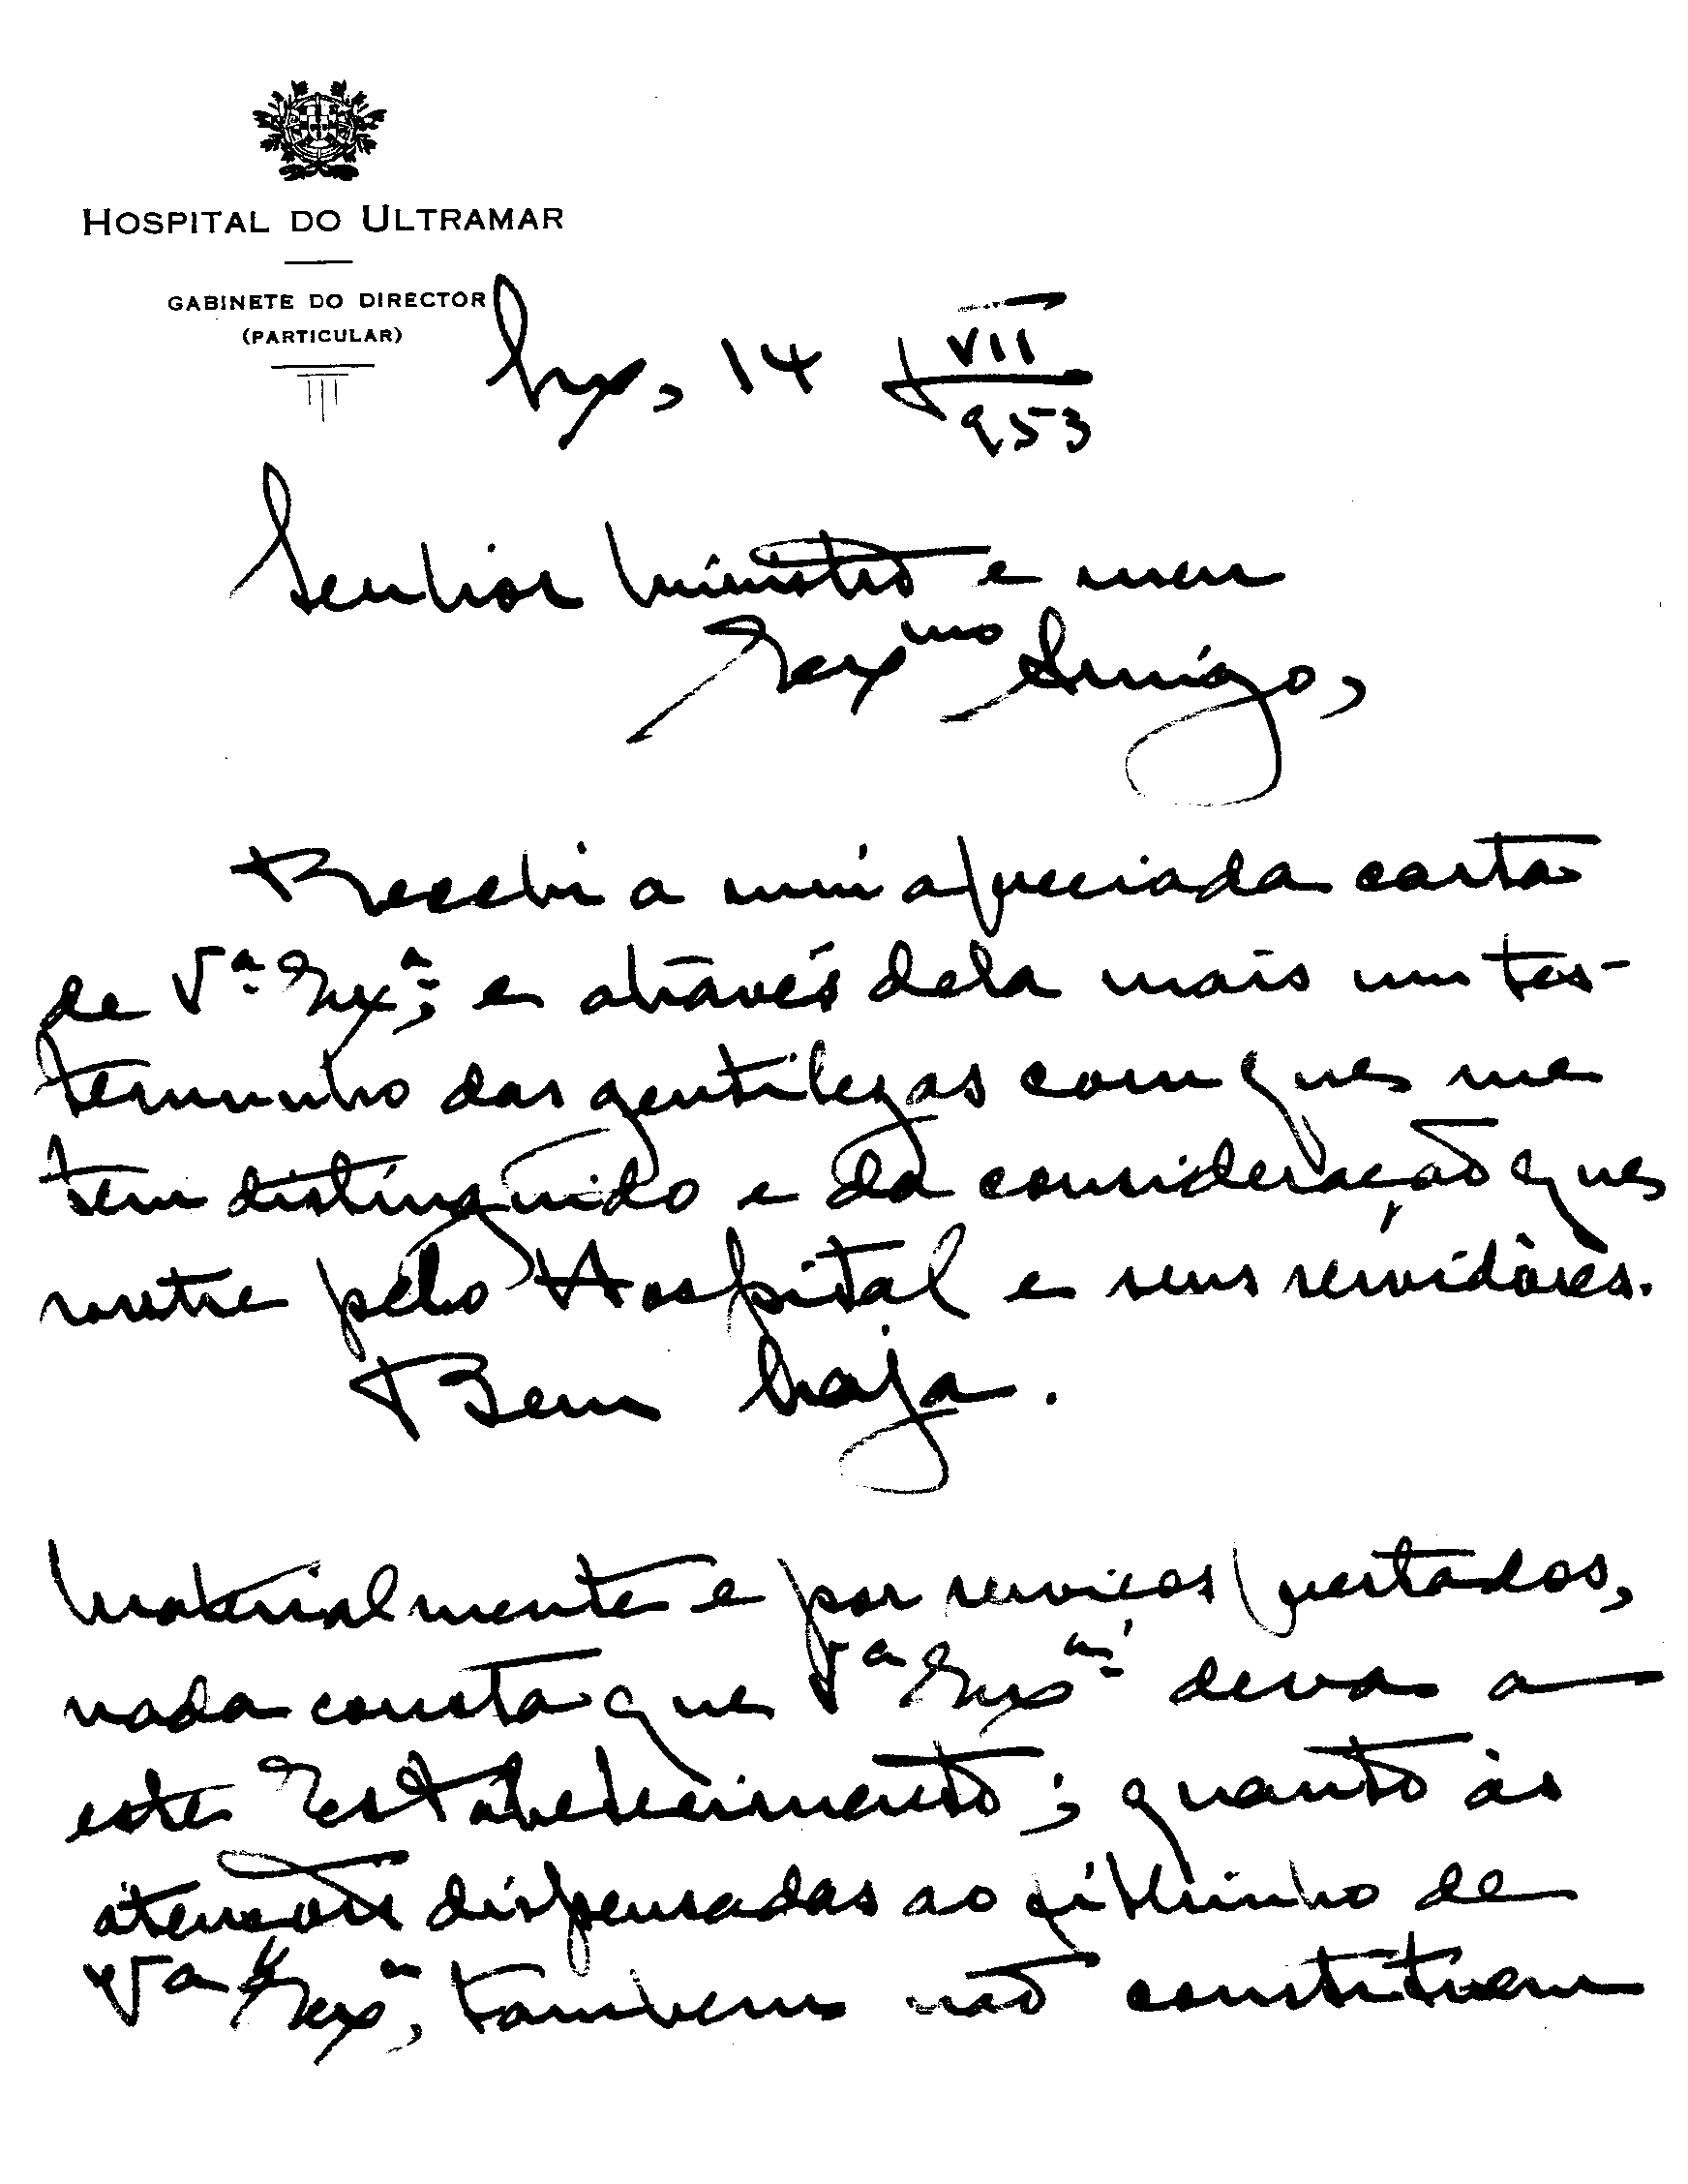 HOSPITAL DO ULTRAMAR
GABINETE DO DIRECTOR
(PARTICULAR)
Lx, 14 VII
953
Senhor Ministro e meu
Exmo Amigo,
Recebi a mui apreciada carta
de Vª Exª; e através dela mais um tes-
temunho das gentilezas com que me
tem distinguido e da consideração que
nutre pelo Hospital e seus servidores.
Bem haja.
Materialmente e por serviços prestados,
nada consta que Vª Exª deva a
este Estabelecimento; quanto às
atenções dispensadas ao filhinho de
Vª Exª, tambem não constituem